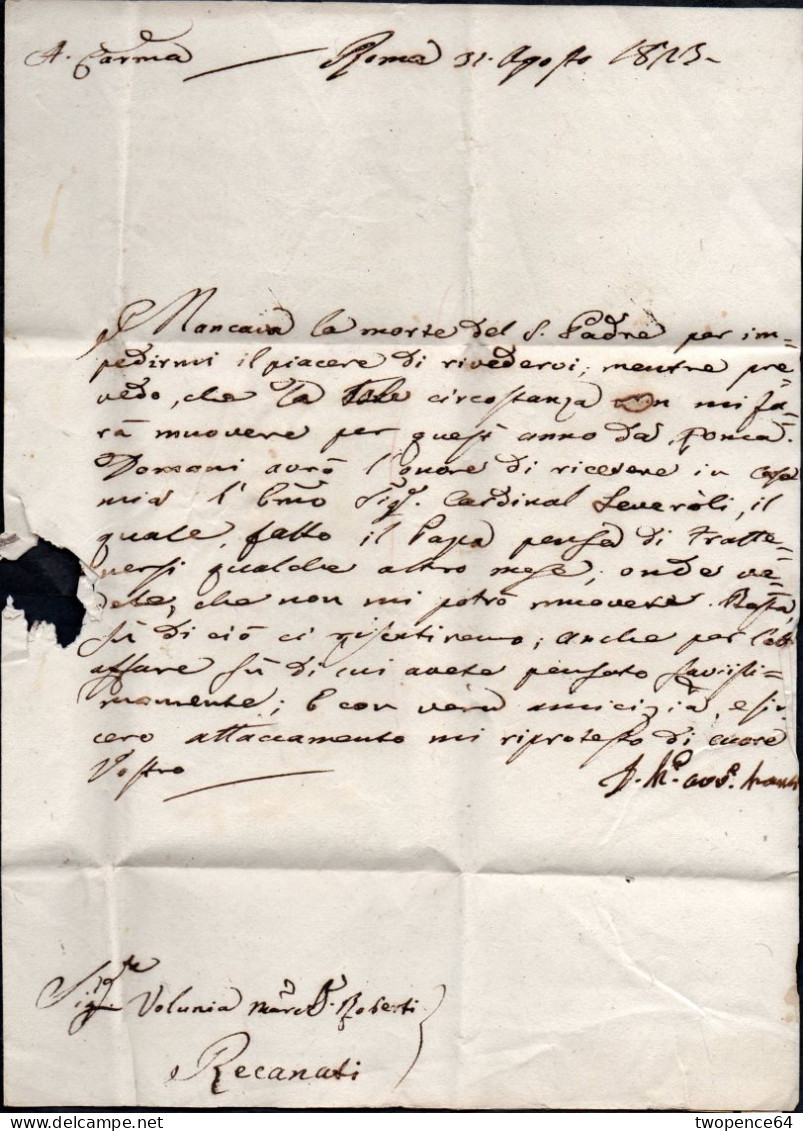 A. Car.ma Roma 31. Agosto 1823.
Mancava la morte del S. Padre per im=
pedirmi il piacere di rivedervi, mentre pre=
vedo, che la circostanza non mi fa=
rà muovere per quest' anno da Roma.
Domani avrò l'onore di ricevere in Casa
mia l' Emo Sigr. Cardinal Severoli, il
quale, fatto il Papa pensa di tratte=
nersi qualche altro mese, onde ve=
dete, che non mi potrò muovere. Basta,
sù di ciò ci risentiremo; anche per l'
affare sù di cui avete pensato saviissi=
mamente; E con vera amicizia, e sin
cero attaccamento mi riprotesto di cuore
Vostro
Sigr. Volunia March. Roberti
Recanati
www.delcampe.net
twopence64